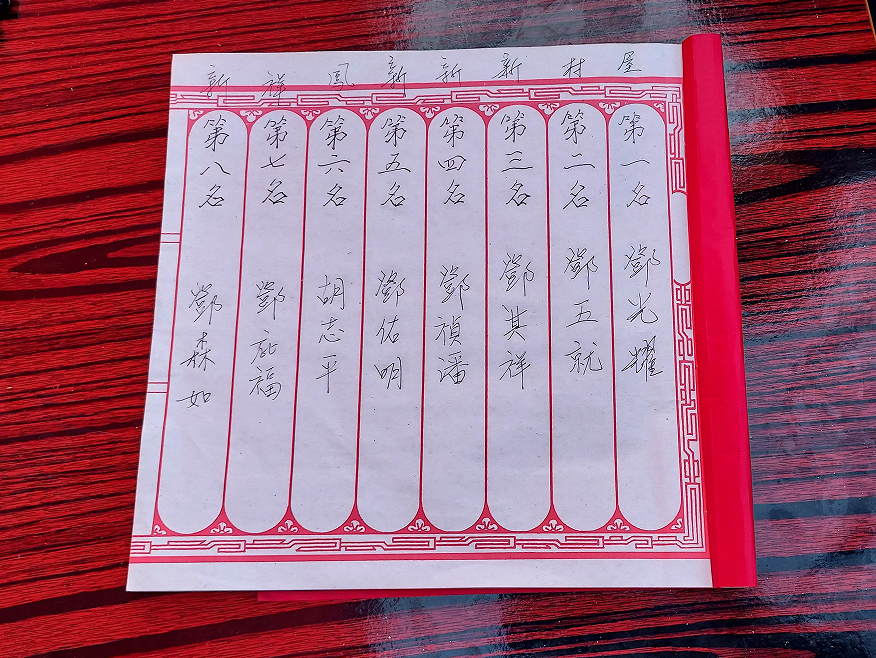 屋 村 新 新 新 鳳 祥 新
第一名 鄧光耀
第二名 鄧五就
第三名 鄧其祥
第四名 鄧禎潘
第五名 鄧佑明
第六名 胡志平
第七名 鄧 福
第八名 鄧森如